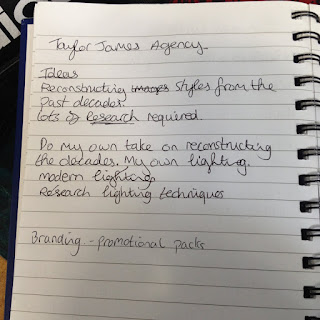 Taylor James Agency
Ideas
Reconstructing images styles from the
past decades.
lots of research required.
Do my own take on reconstructing
the decades. My own lighting.
modern lighting.
Research lighting techniques
Branding - promotional packs